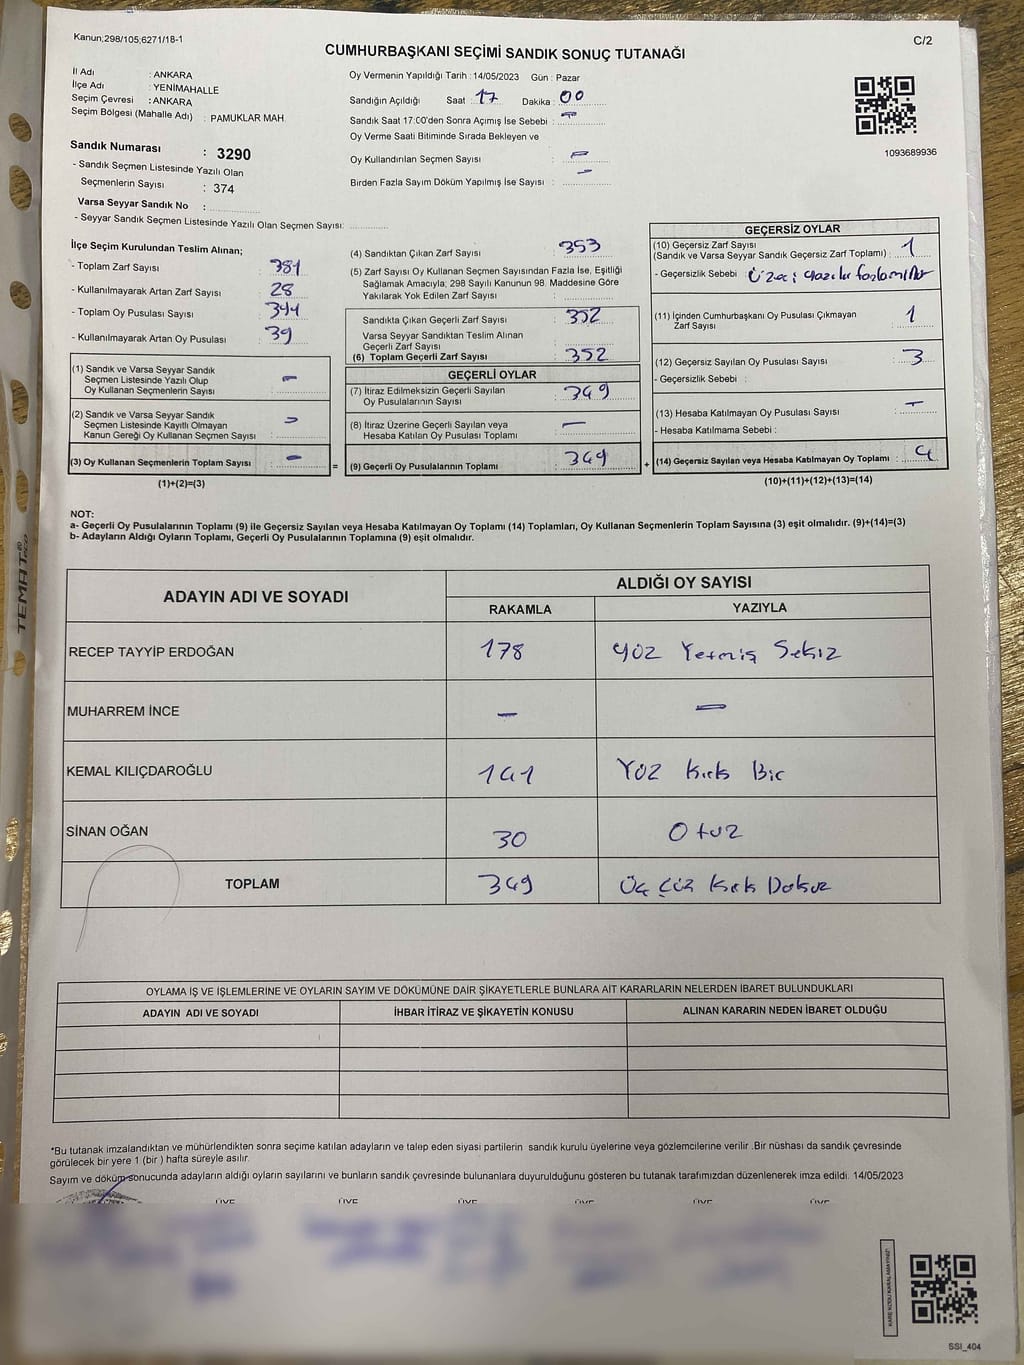 Kanun;298/105;6271/18-1
C/2
CUMHURBAŞKANI SEÇİMİ SANDIK SONUÇ TUTANAĞI
İl Adı : ANKARA
İlçe Adı : YENİMAHALLE
Seçim Çevresi : ANKARA
Seçim Bölgesi (Mahalle Adı) : PAMUKLAR MAH.
Sandık Numarası : 3290
- Sandık Seçmen Listesinde Yazılı Olan
Seçmenlerin Sayısı : 374
Varsa Seyyar Sandık No :
- Seyyar Sandık Seçmen Listesinde Yazılı Olan Seçmen Sayısı:
Oy Vermenin Yapıldığı Tarih : 14/05/2023 Gün : Pazar
Sandığın Açıldığı Saat : 17 Dakika : 00
Sandık Saat 17:00'den Sonra Açımış İse Sebebi : -
Oy Verme Saati Bitiminde Sırada Bekleyen ve
Oy Kullandırılan Seçmen Sayısı : -
Birden Fazla Sayım Döküm Yapılmış İse Sayısı : -
1093689936
İlçe Seçim Kurulundan Teslim Alınan;
- Toplam Zarf Sayısı : 381
- Kullanılmayarak Artan Zarf Sayısı : 28
- Toplam Oy Pusulası Sayısı :
- Kullanılmayarak Artan Oy Pusulası : 39
(1) Sandık ve Varsa Seyyar Sandık
Seçmen Listesinde Yazılı Olup
Oy Kullanan Seçmenlerin Sayısı : -
(2) Sandık ve Varsa Seyyar Sandık
Seçmen Listesinde Kayıtlı Olmayan
Kanun Gereği Oy Kullanan Seçmen Sayısı : -
(3) Oy Kullanan Seçmenlerin Toplam Sayısı : -
(1)+(2)=(3)
(4) Sandıktan Çıkan Zarf Sayısı : 353
(5) Zarf Sayısı Oy Kullanan Seçmen Sayısından Fazla İse, Eşitliği
Sağlamak Amacıyla; 298 Sayılı Kanunun 98. Maddesine Göre
Yakılarak Yok Edilen Zarf Sayısı :
Sandıkta Çıkan Geçerli Zarf Sayısı : 352
Varsa Seyyar Sandıktan Teslim Alınan
Geçerli Zarf Sayısı :
(6) Toplam Geçerli Zarf Sayısı : 352
GEÇERLİ OYLAR
(7) İtiraz Edilmeksizin Geçerli Sayılan
Oy Pusulalarının Sayısı : 349
(8) İtiraz Üzerine Geçerli Sayılan veya
Hesaba Katılan Oy Pusulası Toplamı : -
= (9) Geçerli Oy Pusulalarının Toplamı : 349
GEÇERSİZ OYLAR
(10) Geçersiz Zarf Sayısı
(Sandık ve Varsa Seyyar Sandık Geçersiz Zarf Toplamı) : 1
- Geçersizlik Sebebi :
(11) İçinden Cumhurbaşkanı Oy Pusulası Çıkmayan
Zarf Sayısı : 1
(12) Geçersiz Sayılan Oy Pusulası Sayısı : 3
- Geçersizlik Sebebi :
(13) Hesaba Katılmayan Oy Pusulası Sayısı : -
- Hesaba Katılmama Sebebi :
+ (14) Geçersiz Sayılan veya Hesaba Katılmayan Oy Toplamı : 4
(10)+(11)+(12)+(13)=(14)
NOT:
a- Geçerli Oy Pusulalarının Toplamı (9) ile Geçersiz Sayılan veya Hesaba Katılmayan Oy Toplamı (14) Toplamları, Oy Kullanan Seçmenlerin Toplam Sayısına (3) eşit olmalıdır. (9)+(14)=(3)
b- Adayların Aldığı Oyların Toplamı, Geçerli Oy Pusulalarının Toplamına (9) eşit olmalıdır.
ADAYIN ADI VE SOYADI ALDIĞI OY SAYISI
RAKAMLA YAZIYLA
RECEP TAYYİP ERDOĞAN 178 yüz Yetmiş Sekiz
MUHARREM İNCE - -
KEMAL KILIÇDAROĞLU 141 Yüz kırk Bir
SİNAN OĞAN 30 Otuz
TOPLAM 349 Üç yüz kırk Dokuz
OYLAMA İŞ VE İŞLEMLERİNE VE OYLARIN SAYIM VE DÖKÜMÜNE DAİR ŞİKAYETLERLE BUNLARA AİT KARARLARIN NELERDEN İBARET BULUNDUKLARI
ADAYIN ADI VE SOYADI İHBAR İTİRAZ VE ŞİKAYETİN KONUSU ALINAN KARARIN NEDEN İBARET OLDUĞU
*Bu tutanak imzalandıktan ve mühürlendikten sonra seçime katılan adayların ve talep eden siyasi partilerin sandık kurulu üyelerine veya gözlemcilerine verilir .Bir nüshası da sandık çevresinde
görülecek bir yere 1 (bir ) hafta süreyle asılır.
Sayım ve döküm sonucunda adayların aldığı oyların sayılarını ve bunların sandık çevresinde bulunanlara duyurulduğunu gösteren bu tutanak tarafımızdan düzenlenerek imza edildi. 14/05/2023
ÜYE ÜYE ÜYE ÜYE ÜYE ÜYE
KARE KODU KARALAMAYINIZ!
SSI_404
TEMAT eco